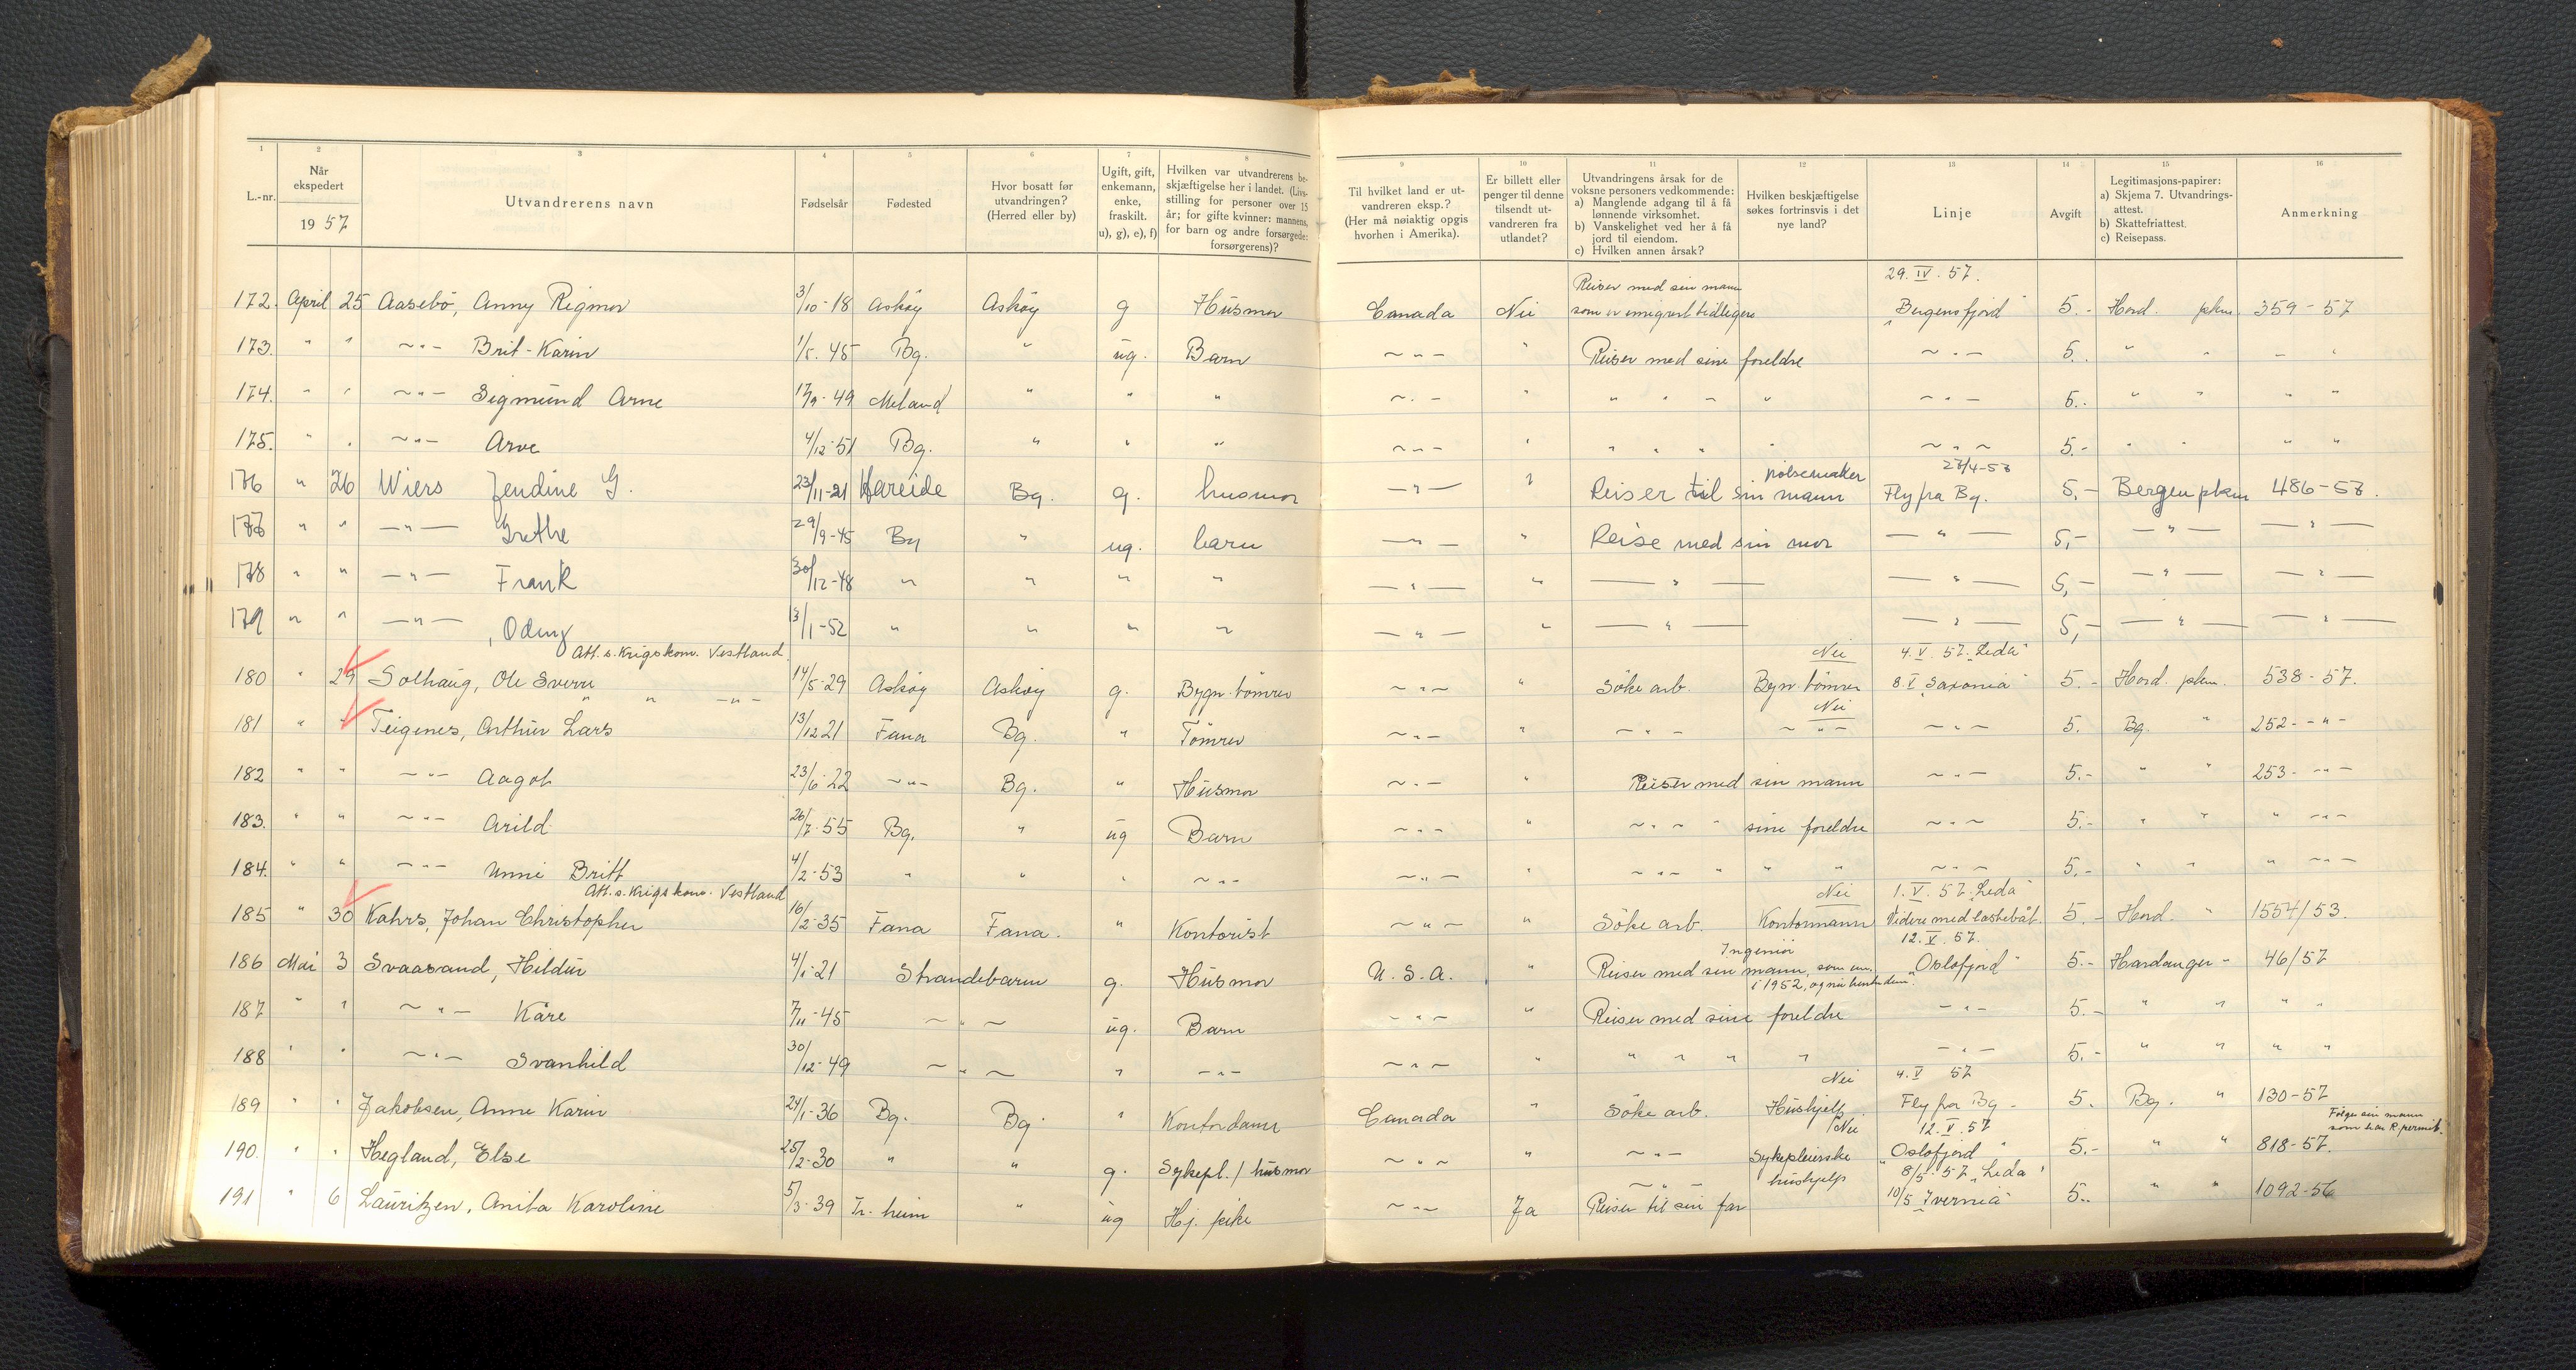 1 2 3 4 5 6 7 8 9 10 11 12 13 14 15 16
L.-nr. | Når ekspedert 1957 | Utvandrerens navn | Fødselsår | Fødested | Hvor bosatt før utvandringen? (Herred eller by) | Ugift, gift, enkemann, enke, fraskilt. u), g), e), f) | Hvilken var utvandrerens beskjæftigelse her i landet. (Livsstilling for personer over 15 år; for gifte kvinner: mannens, for barn og andre forsørgede: forsørgerens)? | Til hvilket land er utvandreren eksp.? (Her må nøiaktig opgis hvorhen i Amerika). | Er billett eller penger til denne tilsendt utvandreren fra utlandet? | Utvandringens årsak for de voksne personers vedkommende: a) Manglende adgang til å få lønnende virksomhet. b) Vanskelighet ved her å få jord til eiendom. c) Hvilken annen årsak? | Hvilken beskjæftigelse søkes fortrinsvis i det nye land? | Linje | Avgift | Legitimasjons-papirer: a) Skjema 7. Utvandringsattest. b) Skattefriattest. c) Reisepass. | Anmerkning
Reiser med sin mann 29. IV. 57.
172. April 25 Aasebö, Anny Rigmor 3/10-18 Askøy Askøy g Husmor Canada Nei som er emigrert tidligere "Bergensfjord" 5.- Hord. pkm. 359-57
173. " " ~"- Brit-Karin 1/5.45 Bg. " ug. Barn ~"- " Reiser med sine foreldre ~"- 5. " " - "
174. " " ~"- Sigmund Arne 17/9-49 Meland " " " ~"- " " " " " ~"- 5.- " " " "
175. " " ~"- Arve 4/12-51 Bg. " " " ~"- " " " " " ~"~ 5.- " " " "
pølsemaker 27/4-57
176 " 26 Wiers Jendine G. 23/11-21 Hareide Bg. g. husmor -"- " Reiser til sin mann Fly fra Bg. 5,- Bergen pkm 486-57.
177 " " -"- Grethe 29/9-45 Bg " ug. barn -"- " Reise med sin mor -"- 5,- -"- -"-
178 " " -"- Frank 30/12-48 " " " " -"- " -"- -"- 5,- -"- -"-
179 " " -"- , Odny 13/1-52 " " " " -"- " -"- -"- 5,- -"- -"-
Att. s. Krigskom. Vestland Nei 4. V. 57. "Leda"
180 " 29 Solhaug, Ole Sverre 14/5-29 Askøy Askøy g. Bygn. tömrer ~"~ " Söke arb. Bygn. tömrer 8. V "Saxonia" 5.- Hord. pkm. 538-57.
" " -"- Nei
181 " " Teigenes, Arthur Lars 13/12 21 Fana Bg. " Tömrer ~"- " ~"- ~"- ~"- 5. Bg. " 252- -"-
182 " " ~"- Aagot 23/6-22 ~"- Bg. " Husmor ~"- " Reiser med sin mann ~"- 5.- " " 253- -"-
183. " " ~"- Arild 26/7-55 Bg. " ug Barn ~"- " ~"~ " sine foreldre ~"~ 5.- " " " ~"-
184. " " ~"- Unni Britt 4/2-53 " " " ~"- ~"- " ~"~ " " " ~"~ 5.- " " " ~"-
Att. s. Krigskom. Vestland Nei 1. V. 57. "Leda"
185 " 30 Kahrs, Johan Christopher 16/2-35 Fana Fana. " Kontorist ~"- " Söke arb. Kontormann Videre med lastebåt. 5.- Hord. " 1554/53.
Ingeniör 12. V. 57.
186 Mai 3 Svaasand, Hildur 4/1-21 Strandebarm g. Husmor U.S.A. " Reiser med sin mann, som em. "Oslofjord" 5.- Hardanger - 46/57
i 1952, og nu henter dem.
187 " " ~"- Kåre 7/11-45 ~"~ ug. Barn ~"~ " Reiser med sine foreldre -"- 5.- " " " "
188 " " ~"- Svanhild 30/12-49 ~"~ " -"- ~"~ " " " " " -"- 5.- " " " "
Nei 4. V 57
189 " " Jakobsen, Anne Karin 24/1-36 Bg. Bg. " Kontordame Canada " Söke arb. Hushjelp Fly fra Bg - 5. Bg. " 130-57
Nei 12. V. 57 Følger sin mann som har R.permit.
190. " " Hegland, Else 25/2-30 " " g. Sykepl./husmor ~"~ " ~"- Sykepleierske "Oslofjord" 5.- " " 818-57.
hushjelp 8/5-57 "Leda"
191 " 6 Lauritzen, Anita Karoline 5/3-39 Tr.heim " ug Hj. pike ~"~ Ja Reiser til sin far 10/5 "Ivernia" 5.- " " 1092-56